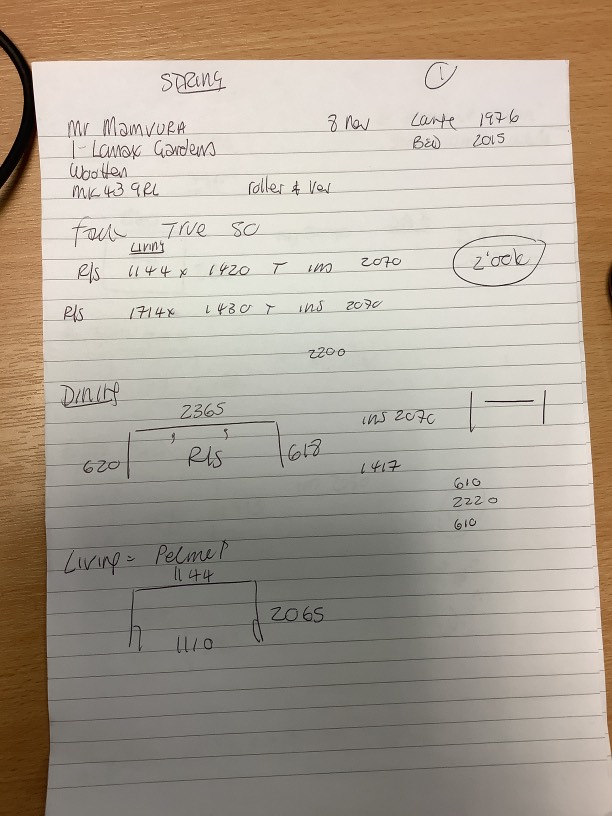 STRING ①
Mr MAMVURA 8 Nov 1976
1 - Lomax Gardens 2015
Wootten
MK43 9RL roller & Ver
TRUE SO
Living
R/s 1144 x 1420 T ins 2070 2'00k
R/s 1714 x 1430 T ins 2070
2200
Dining
2365 ins 2070
620 R/s 618
1417
610
2220
610
Living = Pelmet
1144
2065
1110